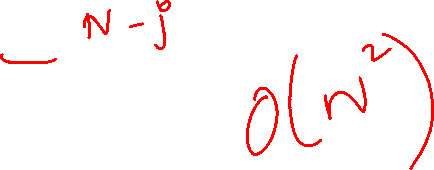 _ N - j
O(N²)